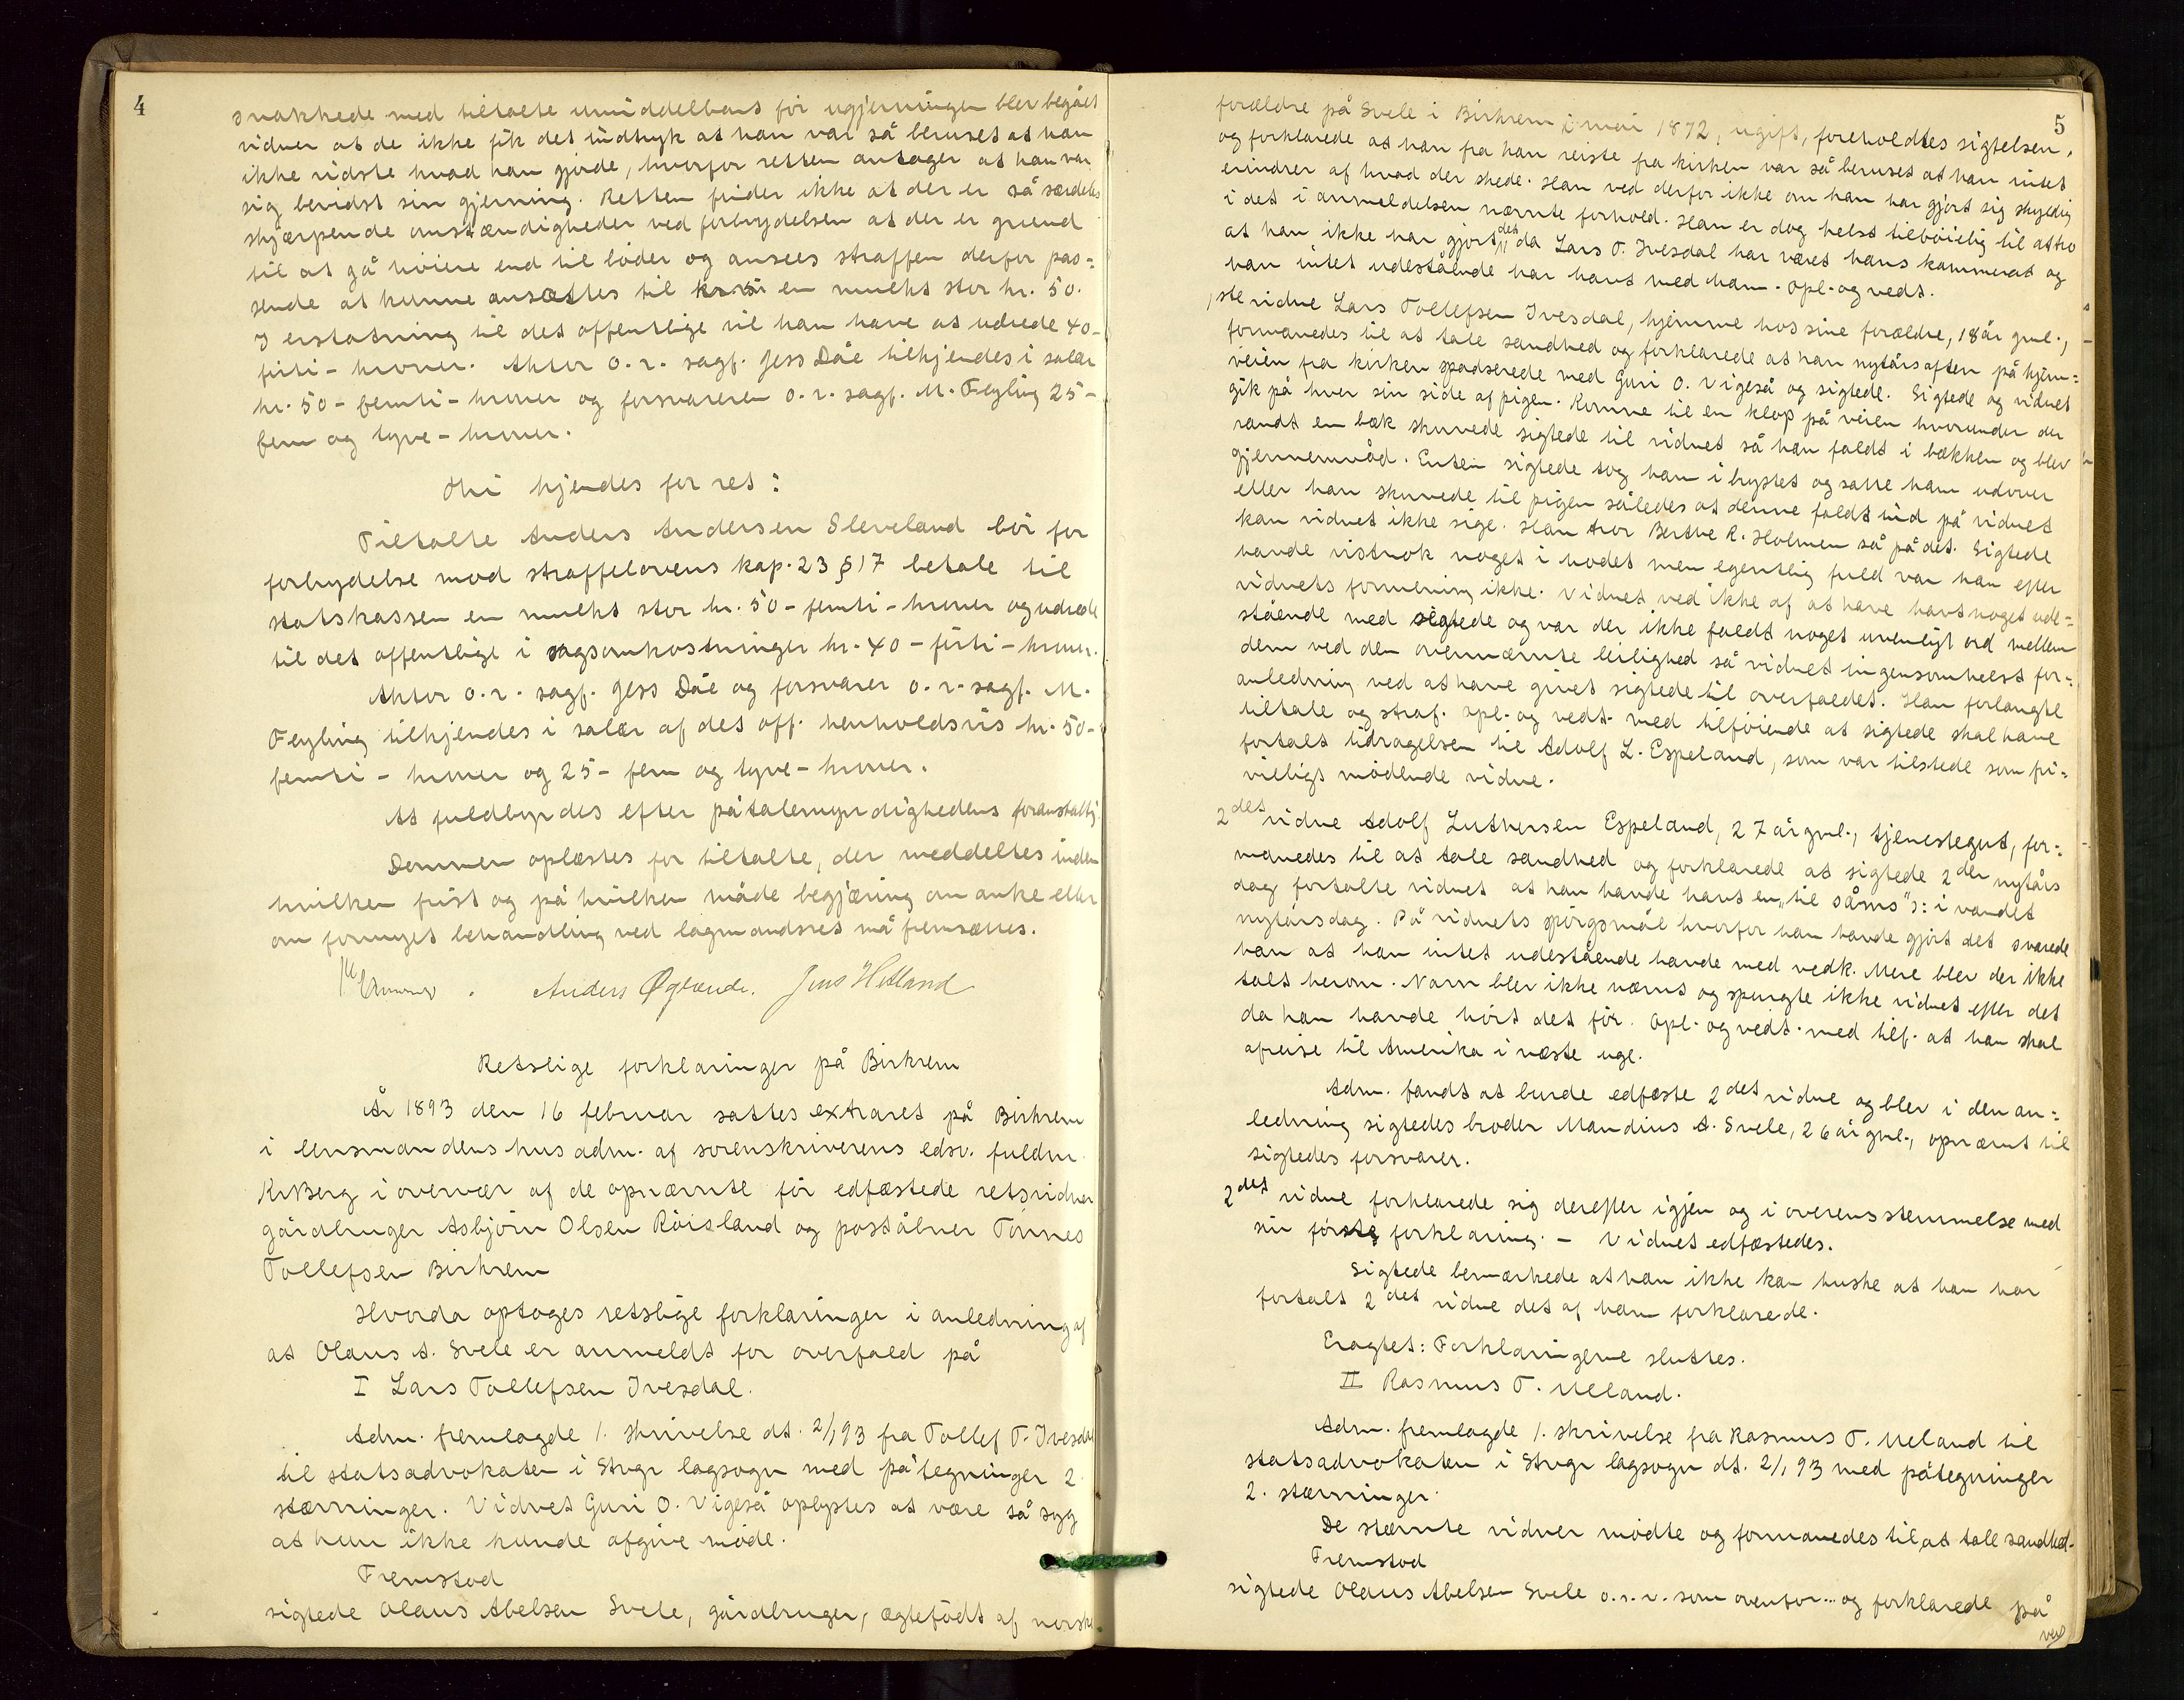 4
snakkede med tiltalte umiddelbart før ugjerningen blev begået
vidner at de ikke fik det indtryk at han var så beruset at han
ikke vidste hvad han gjorde, hvorfor retten antager at han var
sig bevidst sin gjerning. Retten finder ikke at der er så særdeles
skjærpende omstændigheder ved forbrydelsen at der er grund
til at gå høiere end til bøder og ansees straffen derfor pas=
sende at kunne ansættes til en mulkt stor kr. 50.
I erstatning til det offentlige vil han have at udrede 40-
førti - kroner. Aktor o.r. sagf. Jess Dåe tilkjendes i salær
kr. 50 - femti - kroner og forsvareren o.r. sagf. M. Feyling 25-
fem og tyve - kroner.
Thi kjendes for ret:
Tiltalte Anders Andersen Sleveland bør for
forbrydelse mod straffelovens kap. 23 § 17 betale til
statskassen en mulkt stor kr. 50 - femti - kroner og udrede
til det offentlige i sagsomkostninger kr. 40 - førti - kroner.
Aktor o.r. sagf. Jess Dåe og forsvarer o.r. sagf. M.
Feyling tilkjendes i salær af det off. henholdsvis kr. 50-
femti - kroner og 25 - fem og tyve - kroner.
At fuldbyrdes efter påtalemyndighedens foranstaltg.
Dommen oplæstes for tiltalte, der meddeltes inden
hvilken frist og på hvilken måde begjæring om anke eller
om fornyet behandling ved lagmandsret må fremsættes.
Anders Øglænde. Jens Hetland
Retslige forklaringer på Birkrem
År 1893 den 16 februar sattes extraret på Birkrem
i lensmandens hus adm. af sorenskriverens edsv. fuldm.
Kr Berg i overvær af de opnævnte før edfæstede retsvidner
gårdbruger Asbjørn Olsen Røisland og poståbner Tønnes
Tollefsen Birkrem
Hvorda optoges retslige forklaringer i anledning af
at Olaus A. Svele er anmeldt for overfald på
I Lars Tollefsen Ivesdal.
Adm. fremlagde 1. skrivelse dt. 2/1 93 fra Tollef T. Ivesdal
til statsadvokaten i Stvgr lagsogn med påtegninger 2
stævninger. Vidnet Guri O. Vigeså oplystes at være så syg
at hun ikke kunde afgive møde.
Fremstod
sigtede Olaus Abelsen Svele, gårdbruger, ægtefødt af norske
5
forældre på Svele i Birkrem i mai 1872, ugift, foreholdtes sigtelsen,
og forklarede at han fra han reiste fra kirken var så beruset at han intet
erindrer af hvad der skede. Han ved derfor ikke om han har gjort sig skyldig
i det i anmeldelsen nævnte forhold. Han er dog helst tilbøielig til at tro
at han ikke har gjort det da Lars T. Ivesdal har været hans kammerat og
han intet udestående har havt med ham. Opl. og vedt.
1ste vidne Lars Tollefsen Ivesdal, hjemme hos sine forældre, 18 år gml.,
formanedes til at tale sandhed og forklarede at han nytårsaften på hjem=
veien fra kirken spadserede med Guri O. Vigeså og sigtede. Sigtede og vidnet
gik på hver sin side af pigen. Komne til en klop på veien hvorunder der
randt en bæk skuvede sigtede til vidnet så han faldt i bækken og blev
gjennemvåd. Enten sigtede tog ham i brystet og satte ham udover
eller han skuvede til pigen således at denne faldt ind på vidnet
kan vidnet ikke sige. Han tror Berthe R. Holmen så på det. Sigtede
havde vistnok noget i hodet men egentlig fuld var han efter
vidnets formening ikke. Vidnet ved ikke af at have havt noget ude=
stående med sigtede og var der ikke faldt noget uvenligt ord mellem
dem ved den ovennævnte leilighed så vidnet ingensomhelst for=
anledning ved at have givet sigtede til overfaldet. Han forlangte
tiltale og straf. Opl. og vedt. med tilføiende at sigtede skal have
fortalt tildragelsen til Adolf L. Espeland, som var tilstede som fri=
villigt mødende vidne.
2det vidne Adolf Luthersen Espeland, 27 år gml., tjenestegut, for=
manedes til at tale sandhed og forklarede at sigtede 2den nytårs
dag fortalte vidnet at han havde havt en „til såms" ɔ: i vandet
nytårsdag. På vidnets spørgsmål hvorfor han havde gjort det svarede
han at han intet udestående havde med vedk. Mere blev der ikke
talt herom. Navn blev ikke nævnt og spurgte ikke vidnet efter det
da han havde hørt det før. Opl. og vedt. med tilf. at han skal
afreise til Amerika i næste uge.
Adm. fandt at burde edfæste 2det vidne og blev i den an=
ledning sigtedes broder Mandius A. Svele, 26 år gml., opnævnt til
sigtedes forsvarer.
2det vidne forklarede sig derefter igjen og i overensstemmelse med
sin første forklaring. - Vidnet edfæstedes.
Sigtede bemærkede at han ikke kan huske at han har
fortalt 2det vidne det af ham forklarede.
Eragtet: Forklaringerne sluttes.
II Rasmus T. Ueland.
Adm. fremlagde 1. skrivelse fra Rasmus T. Ueland til
statsadvokaten i Stvgr lagsogn dt. 2/1 93 med påtegninger
2. stævninger.
De stævnte vidner mødte og formanedes til at tale sandhed.
Fremstod
sigtede Olaus Abelsen Svele o.s.v. som ovenfor... og forklarede på
ved